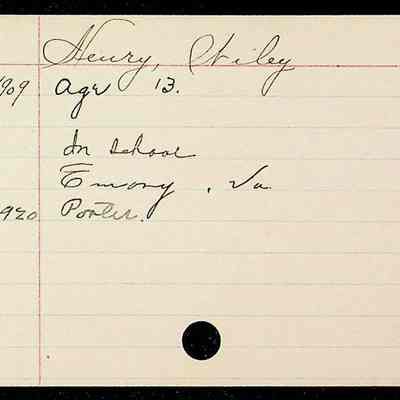 Henry, Wiley
1909 Age 13.
In school
Emory, Va.
1920 Porter.